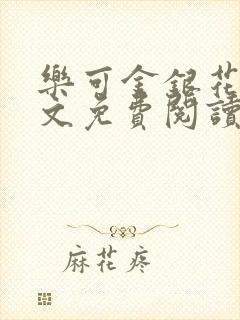 樂可金銀花
文免費閱讀
麻花疼